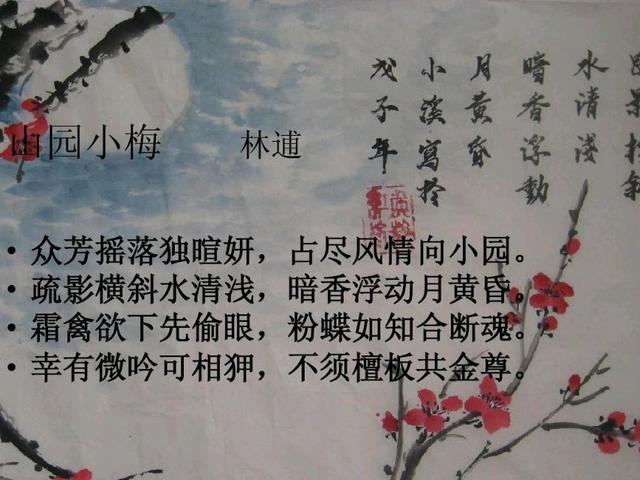 山园小梅 林逋
众芳摇落独暄妍，占尽风情向小园。
疏影横斜水清浅，暗香浮动月黄昏。
霜禽欲下先偷眼，粉蝶如知合断魂。
幸有微吟可相狎，不须檀板共金尊。
影横斜
水清淺
暗香浮動
月黄昏
小溪寫於
戊子年